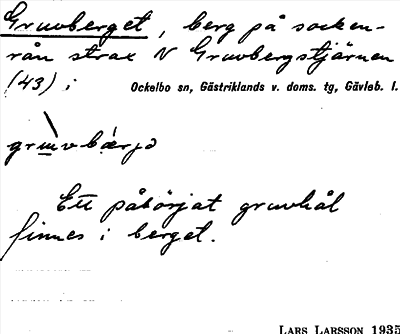 Gruvberget, berg på socken-
rån strax N Gruvbergstjärnen
(43) i
Ockelbo sn, Gästriklands v. doms. tg, Gävleb. l.
Ett påbörjat gruvhål
finnes i berget.
LARS LARSSON 1935